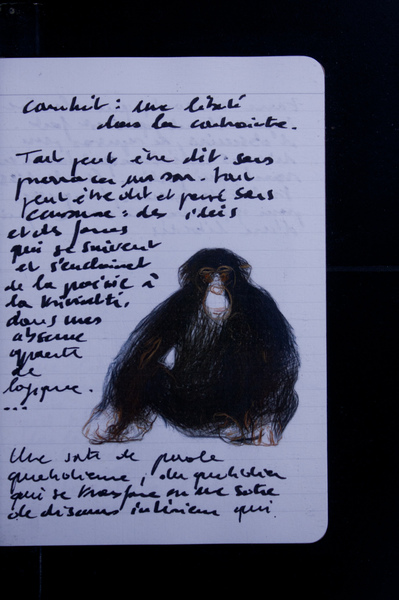 : une liberté
dans la contrainte.
Tout peut être dit sans
prononcer un son. Tout
peut être dit et pensé sans
 : des idées
et des formes
qui se suivent
et s'enchainent
de la poésie à
la trivialité,
dans une
absence
apparente
de
logique.
...
Une sorte de parole
quotidienne, du quotidien
qui se transforme en une sorte
de discours intérieur qui